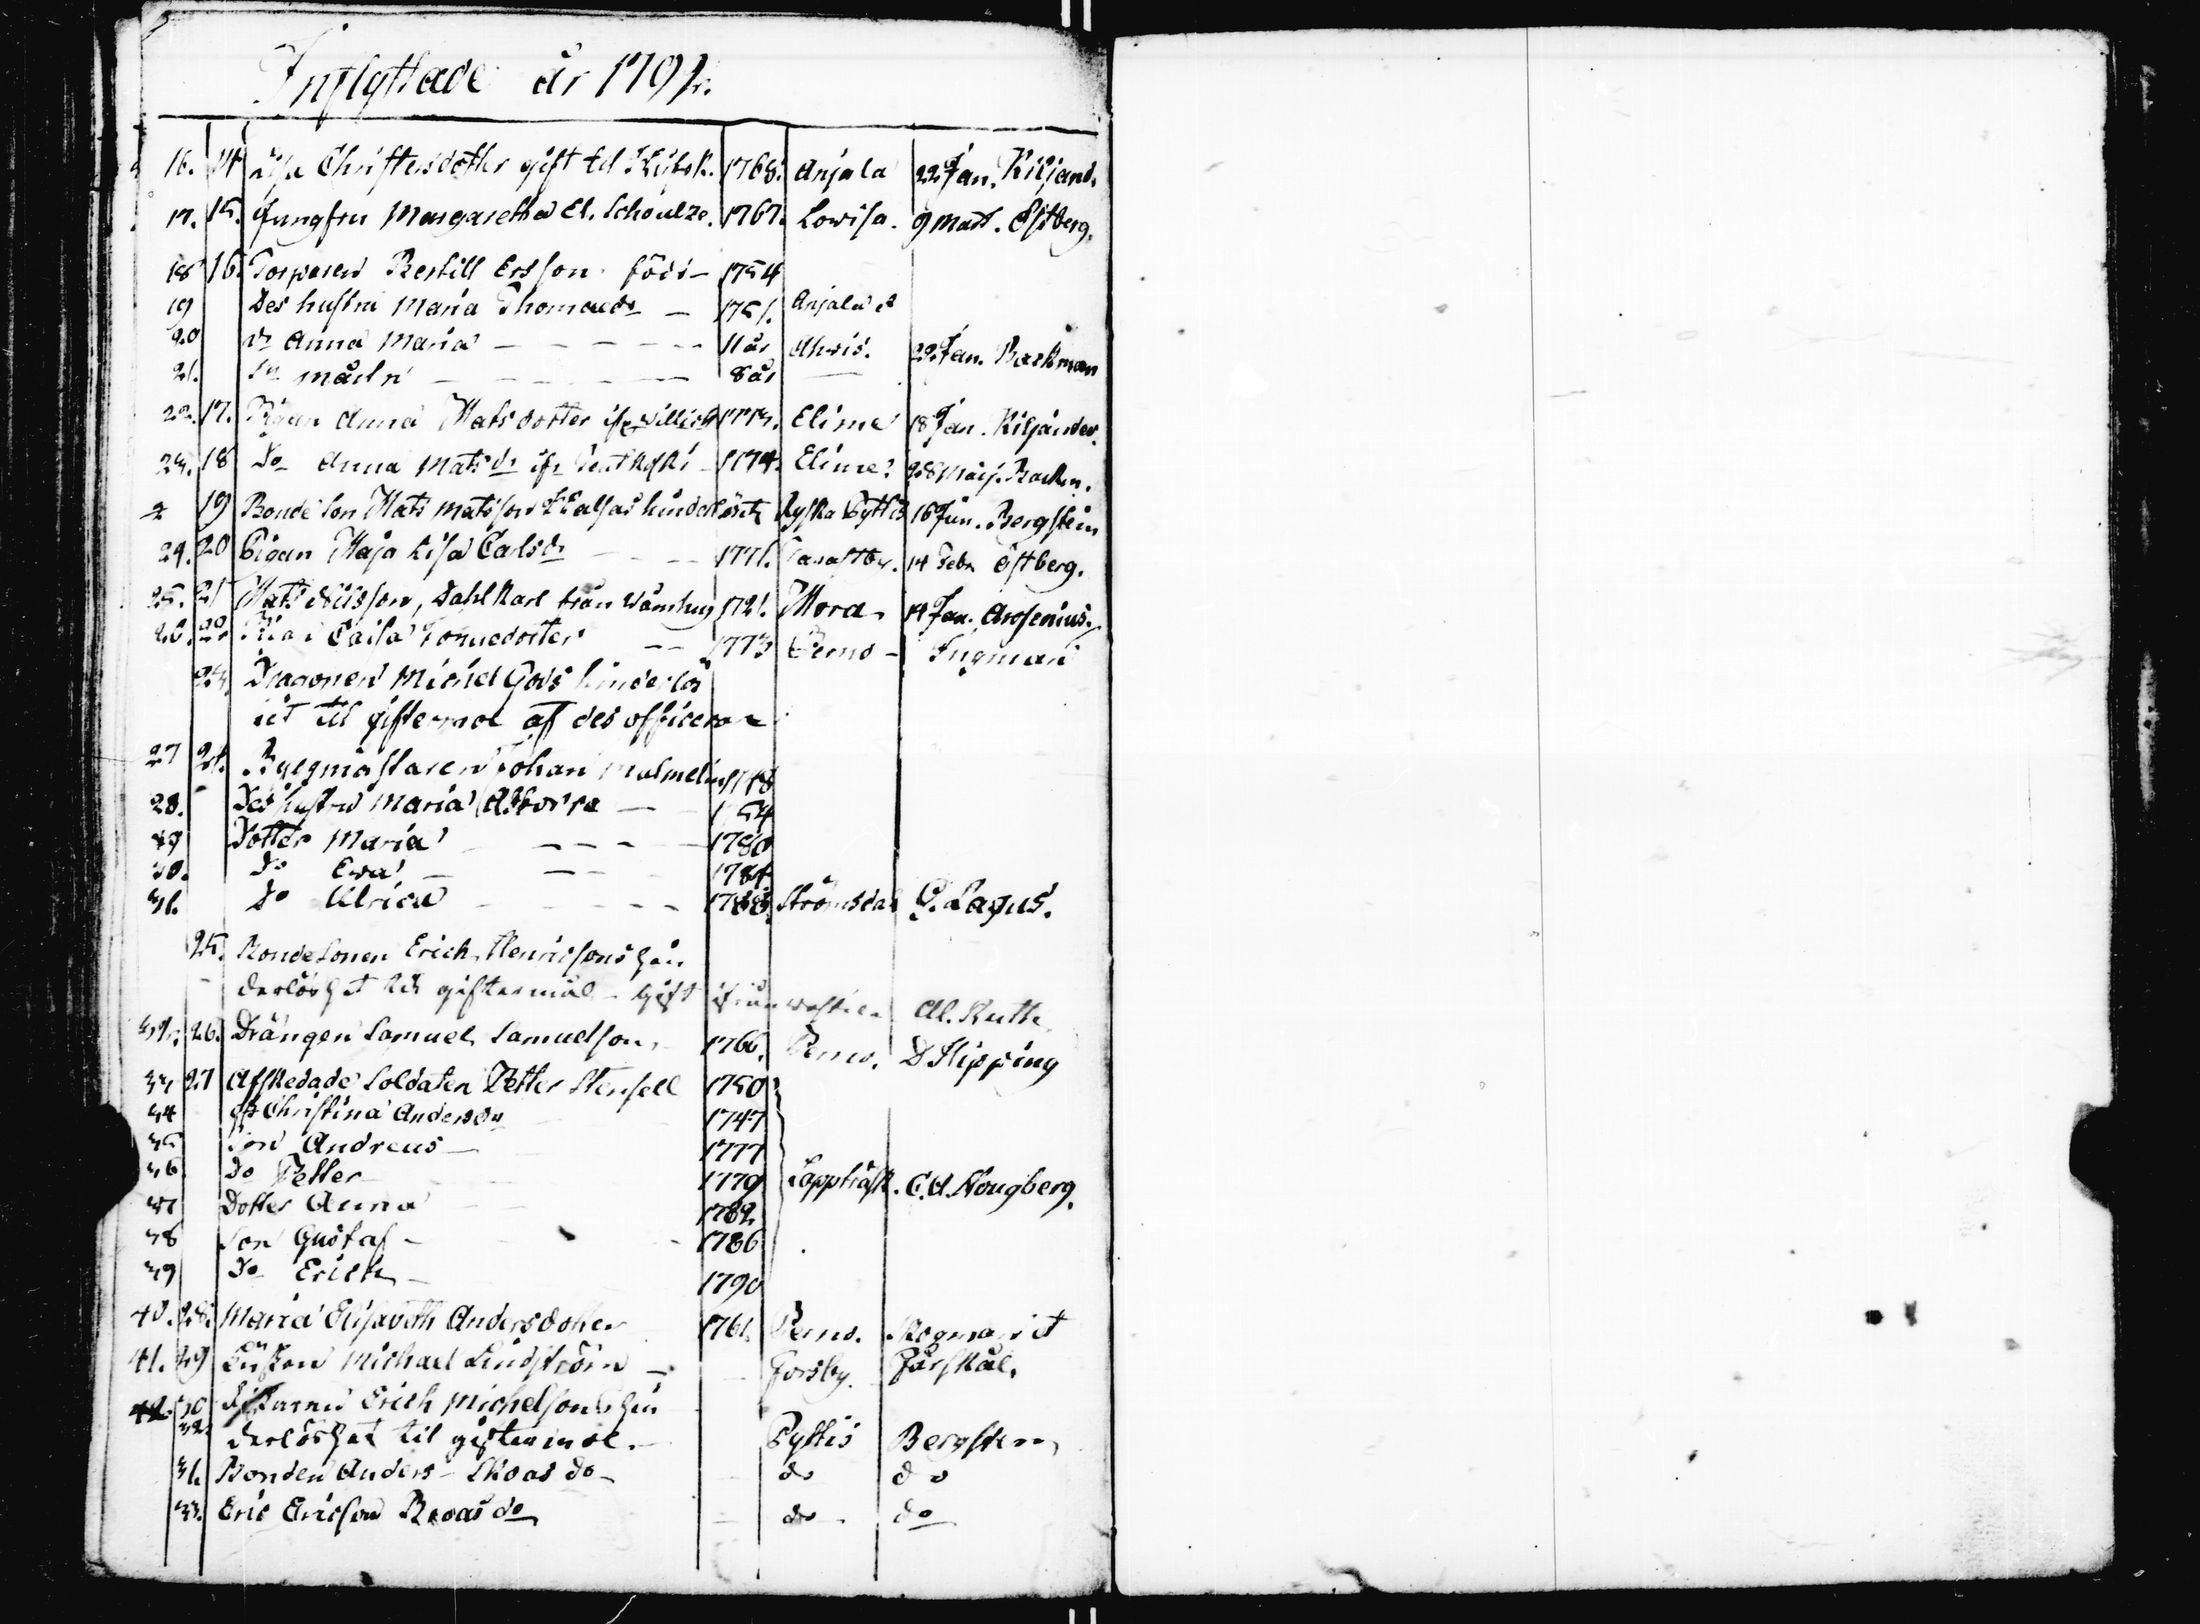 Inflyttade år 1791.
16. 14 Lisa Christersdotter gift til Kijsk. 1768. Anjala 22 Jan. Kiljand.
17. 15. Jungfru Margaretha El. Schoulze. 1767. Lowisa. 9 Mart. Östberg.
18 16. Torparen Bertill Ersson född 1754
19 Des hustru Maria Thomæ dr — 1751. Anjala
20 dr Anna Maria — — — 11 år 22 Jan. Backman
21. — — — 8 år
22. 17. Pigan Anna Matsdotter 1773. Elime 18 Jan. Kiljander.
23. 18 Do Anna Mats dr 1774. Elime 28 Maij. Backm.
19 Bonde Son Mats Matsson Ryska Pyttis 16 Jun. Bergstein
24. 20 Pigan Maja Lisa Carls dr — 1771. 14 Febr Östberg.
25. 21 Mats Nilsson, Dahlkarl från Våmhus 1721. Mora 14 Jan. Arosenius.
26. 22 Caisa 1773 Perno — Ingman
23. Dragonen Michel Gods hinderlös
het til giftermol af des officerare
27 24. Byggmästaren Johan Malmelin 1748
28. Des hustru Maria 1754
29 Dotter Maria — — — 1780
30. do Ewa — — — 1784
31. do Ulrica — — — 1788. Strömsdal G. Lagus.
25. Bondesonen Erich Henricsons hin
derlöshet til giftermål — Gift ifrån Al. Ruth
32. 26. Drängen Samuel Samuelson, 1766. Perno. D Slipping
33 27 Afskedade Soldaten Petter Stensell 1750
34 Christina Anders dr 1747
35 Son Andreas — 1777
36 do Petter 1779 Lappträsk. C. A. Kougberg.
37 Dotter Anna 1782.
38 Son Gustaf — 1786
39 do Erich — 1790
40. 28. Maria Elisabeth Andersdotter 1761. Perno. Kogman
41. 29 Michael Lindström — Forsby. Forskål.
42. 30 Erich Michelsons hin
32. derlöshet til giftermol. — Pyttis Bergsten
31. Bonden Anders Skoas do — do do
33. Eric Ericson do — do do